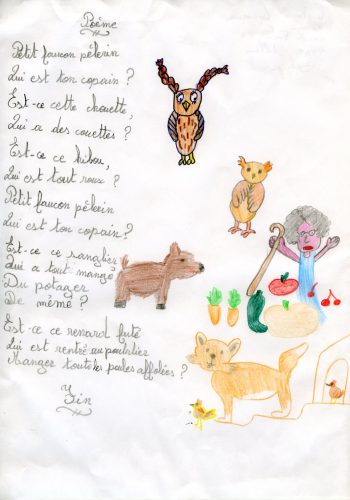 Poème
Petit faucon pélerin
Qui est ton copain ?
Est-ce cette chouette,
Qui a des couettes ?
Est-ce ce hibou,
Qui est tout roux ?
Petit faucon pélerin
Qui est ton copain ?
Est-ce ce sanglier
Qui a tout mangé
Du potager
De mémé ?
Est-ce ce renard futé
Qui est rentré au poulailler
Manger toutes les poules affolées ?
Fin